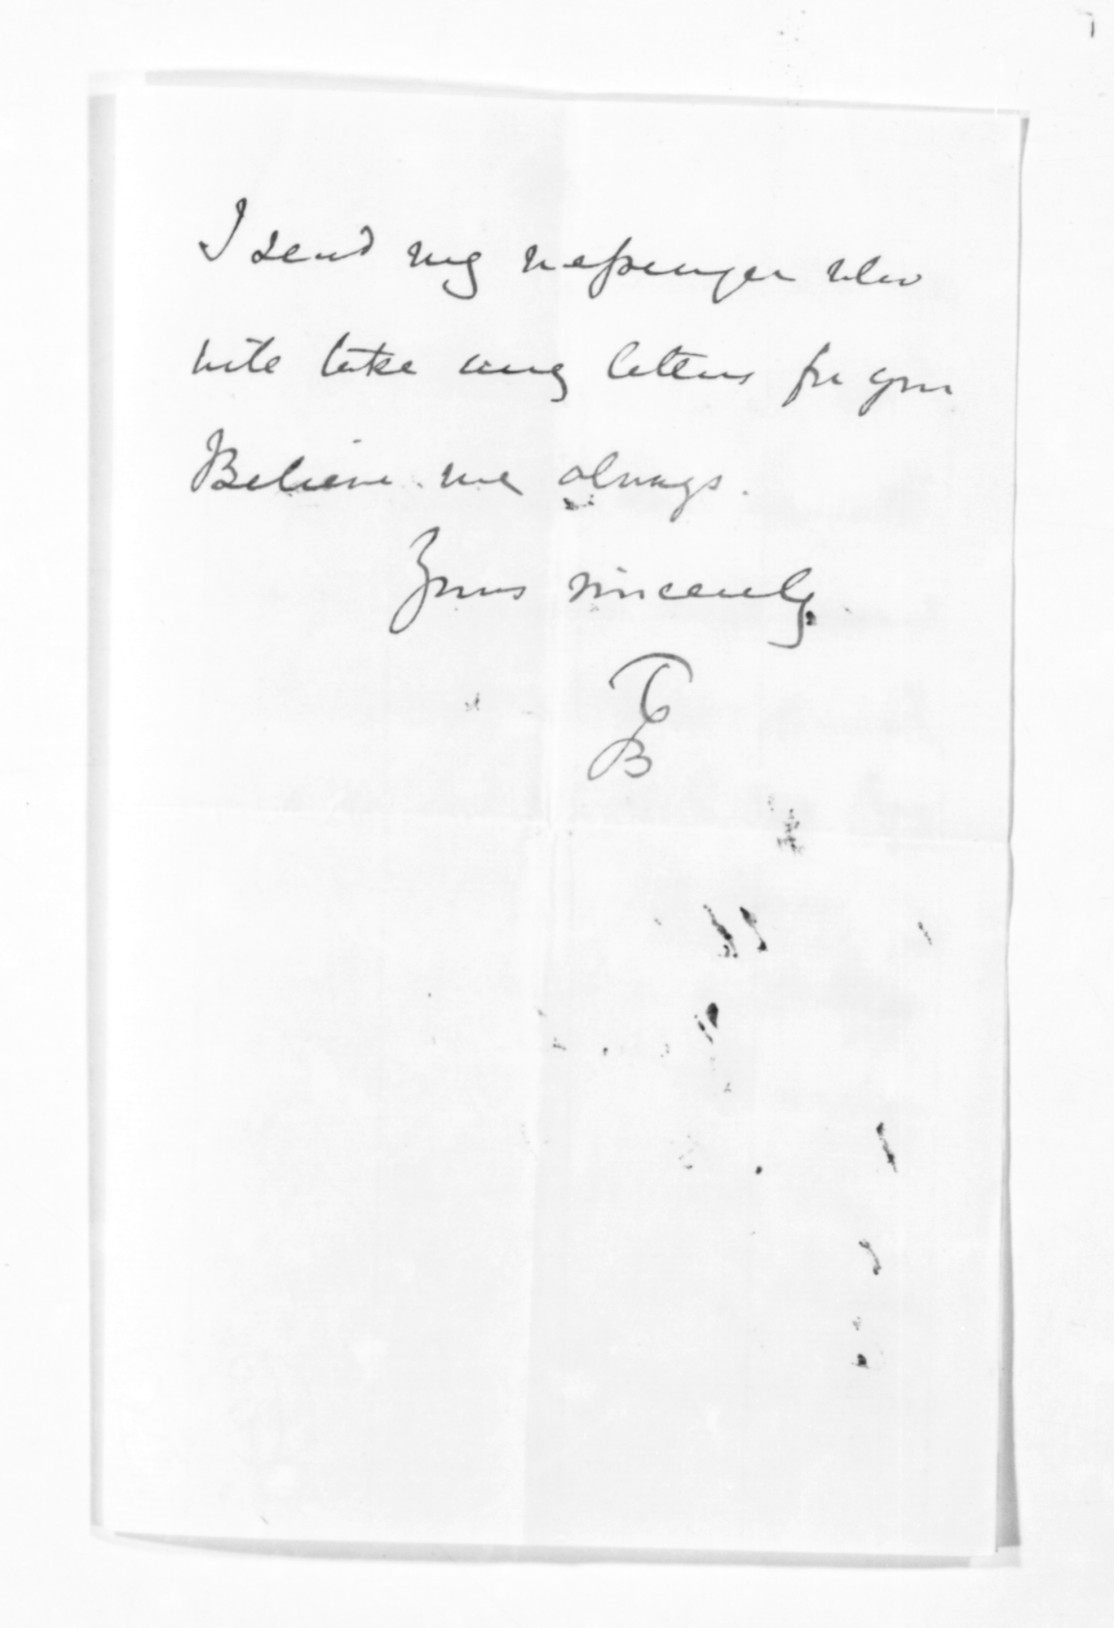 I send my messenger who
will take any letters for you
Believe me always.
Yours sincerely
TG
B